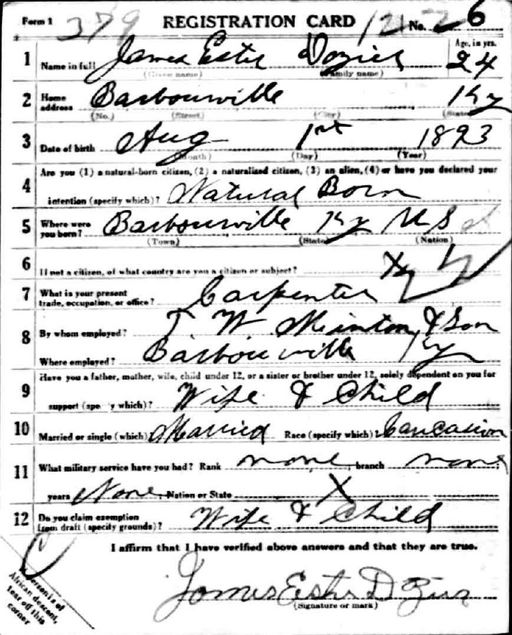 Form 1 379 REGISTRATION CARD No. 26
1 Name in full James Ester Dozier Age, in yrs. 24
(Given name) (Family name)
2 Home address Barbourville Ky
(No.) (Street) (City) (State)
3 Date of birth Aug 1st 1893
(Month) (Day) (Year)
4 Are you (1) a natural-born citizen, (2) a naturalized citizen, (3) an alien, (4) or have you declared your
intention (specify which)? Natural Born
5 Where were you born? Barbourville Ky U S
(Town) (State) (Nation)
6 If not a citizen, of what country are you a citizen or subject? X
7 What is your present trade, occupation, or office? Carpenter
8 By whom employed? T W Minton & Son
Where employed? Barbourville Ky
9 Have you a father, mother, wife, child under 12, or a sister or brother under 12, solely dependent on you for
support (specify which)? Wife & Child
10 Married or single (which) Married Race (specify which)? Caucasian
11 What military service have you had? Rank none branch none
years None Nation or State X
12 Do you claim exemption from draft (specify grounds)? Wife & Child
I affirm that I have verified above answers and that they are true.
James Ester Dozier
(Signature or mark)
If person is of
African descent,
tear off this
corner